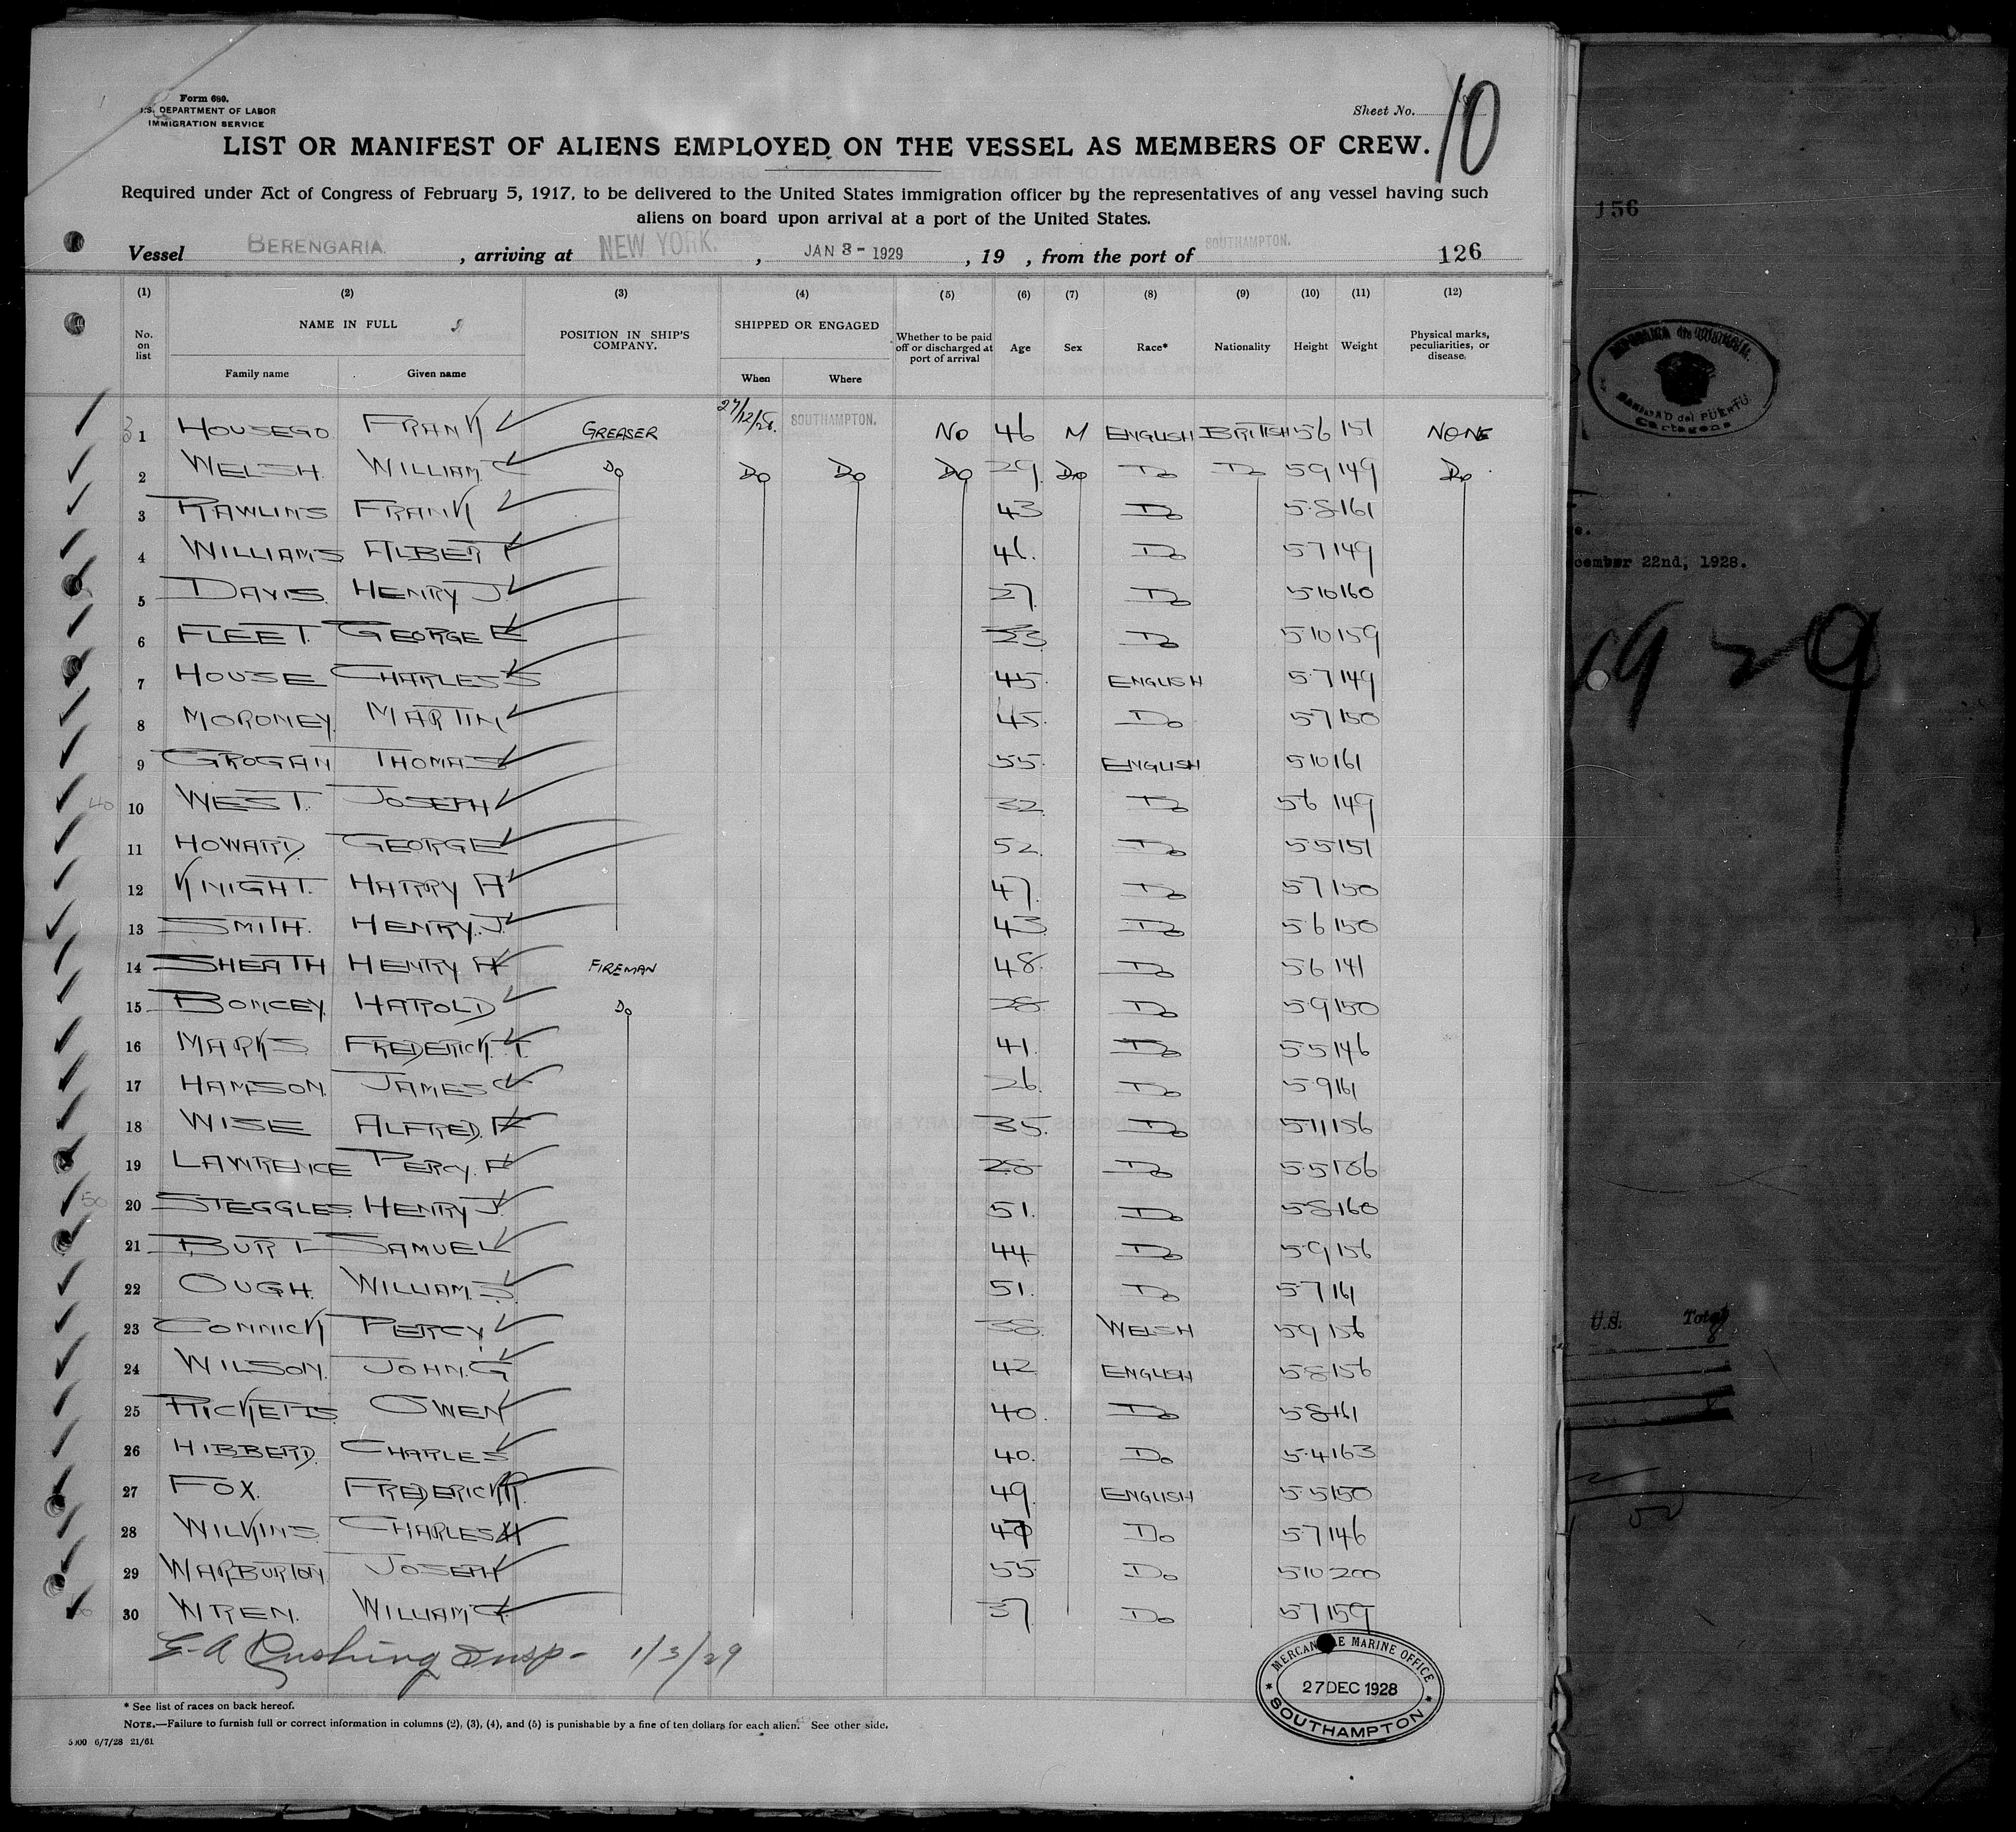 Form 680.
U.S. DEPARTMENT OF LABOR
IMMIGRATION SERVICE
Sheet No. 10
LIST OR MANIFEST OF ALIENS EMPLOYED ON THE VESSEL AS MEMBERS OF CREW.
Required under Act of Congress of February 5, 1917, to be delivered to the United States immigration officer by the representatives of any vessel having such
aliens on board upon arrival at a port of the United States.
Vessel BERENGARIA. , arriving at NEW YORK. , JAN 3 - 1929 , 19 , from the port of SOUTHAMPTON. 126
(1) (2) (3) (4) (5) (6) (7) (8) (9) (10) (11) (12)
No. on list NAME IN FULL POSITION IN SHIP'S COMPANY. SHIPPED OR ENGAGED Whether to be paid off or discharged at port of arrival Age Sex Race* Nationality Height Weight Physical marks, peculiarities, or disease.
Family name Given name When Where
1 HOUSEGO FRANK GREASER 27/12/28. SOUTHAMPTON. NO 46 M ENGLISH BRITISH 56 151 NONE
2 WELSH. WILLIAM C Do Do Do Do 29 Do Do Do 59 149 Do
3 RAWLINS FRANK 43 Do 5.8 161
4 WILLIAMS ALBERT 46. Do 57 149
5 DAVIS. HENRY J 27. Do 510 160
6 FLEET. GEORGE E 23 Do 510 159
7 HOUSE CHARLES S 45. ENGLISH 5.7 149
8 MORONEY. MARTIN 45. Do 57 150
9 GROGAN THOMAS 55. ENGLISH 510 161
40 10 WEST. JOSEPH 32. Do 56 149
11 HOWARD. GEORGE 52. Do 55 151
12 KNIGHT. HARRY A 47. Do 57 150
13 SMITH. HENRY. J. 43 Do 56 150
14 SHEATH HENRY A FIREMAN 48. Do 56 141
15 BONCEY. HAROLD Do 28 Do 59 150
16 MARKS FREDERICK. T. 41. Do 55 146
17 HAMSON. JAMES C 26. Do 5.9 161
18 WISE ALFRED. F 35. Do 511 156
19 LAWRENCE PERCY. F 28 Do 5.5
50 20 STEGGLES. HENRY J. 51. Do 58 160
21 BURT SAMUEL 44 Do 5.9 156
22 OUGH. WILLIAM. S. 51. Do 5.7 161
23 CONNICK PERCY. 38. WELSH 59 156
24 WILSON. JOHN. G 42 ENGLISH 58 156
25 RICKETTS. OWEN 40. Do 58 161
26 HIBBERD. CHARLES 40. Do 5.4 163
27 FOX. FREDERICK R. 49. ENGLISH 55 150
28 WILKINS CHARLES H Do 57 146
29 WARBURTON JOSEPH 55 Do 510 200
30 WREN. WILLIAM G. 37 Do 57 159
E. A Cushing Insp - 1/3/29
MERCANTILE MARINE OFFICE
27 DEC 1928
SOUTHAMPTON
* See list of races on back hereof.
NOTE.—Failure to furnish full or correct information in columns (2), (3), (4), and (5) is punishable by a fine of ten dollars for each alien. See other side.
5000 6/7/28 21/61
156
SANIDAD del PUERTO
Cartagena
cember 22nd, 1928.
1929
U.S. Total